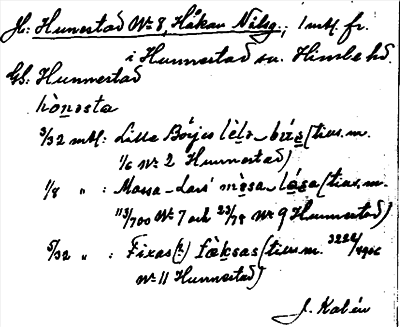 Jb. Hunnestad No 8, Håkan Nilsg., 1 mtl. fr.
i Hunnestad sn. Himle hd.
Gb: Hunnestad
hònəsta
3/32 mtl: Lilla Börjes lèlə-bǿrəs (tills.m.
1/6 No 2 Hunnestad)
1/8 " : Massa-Lars' màsa-lásа (tills.m.
113/700 No 7 och 23/78 No 9 Hunnestad)
5/32 " : Fixas(?) fìksas (tills m. 3222/4906
No 11 Hunnestad)
J. Kalén